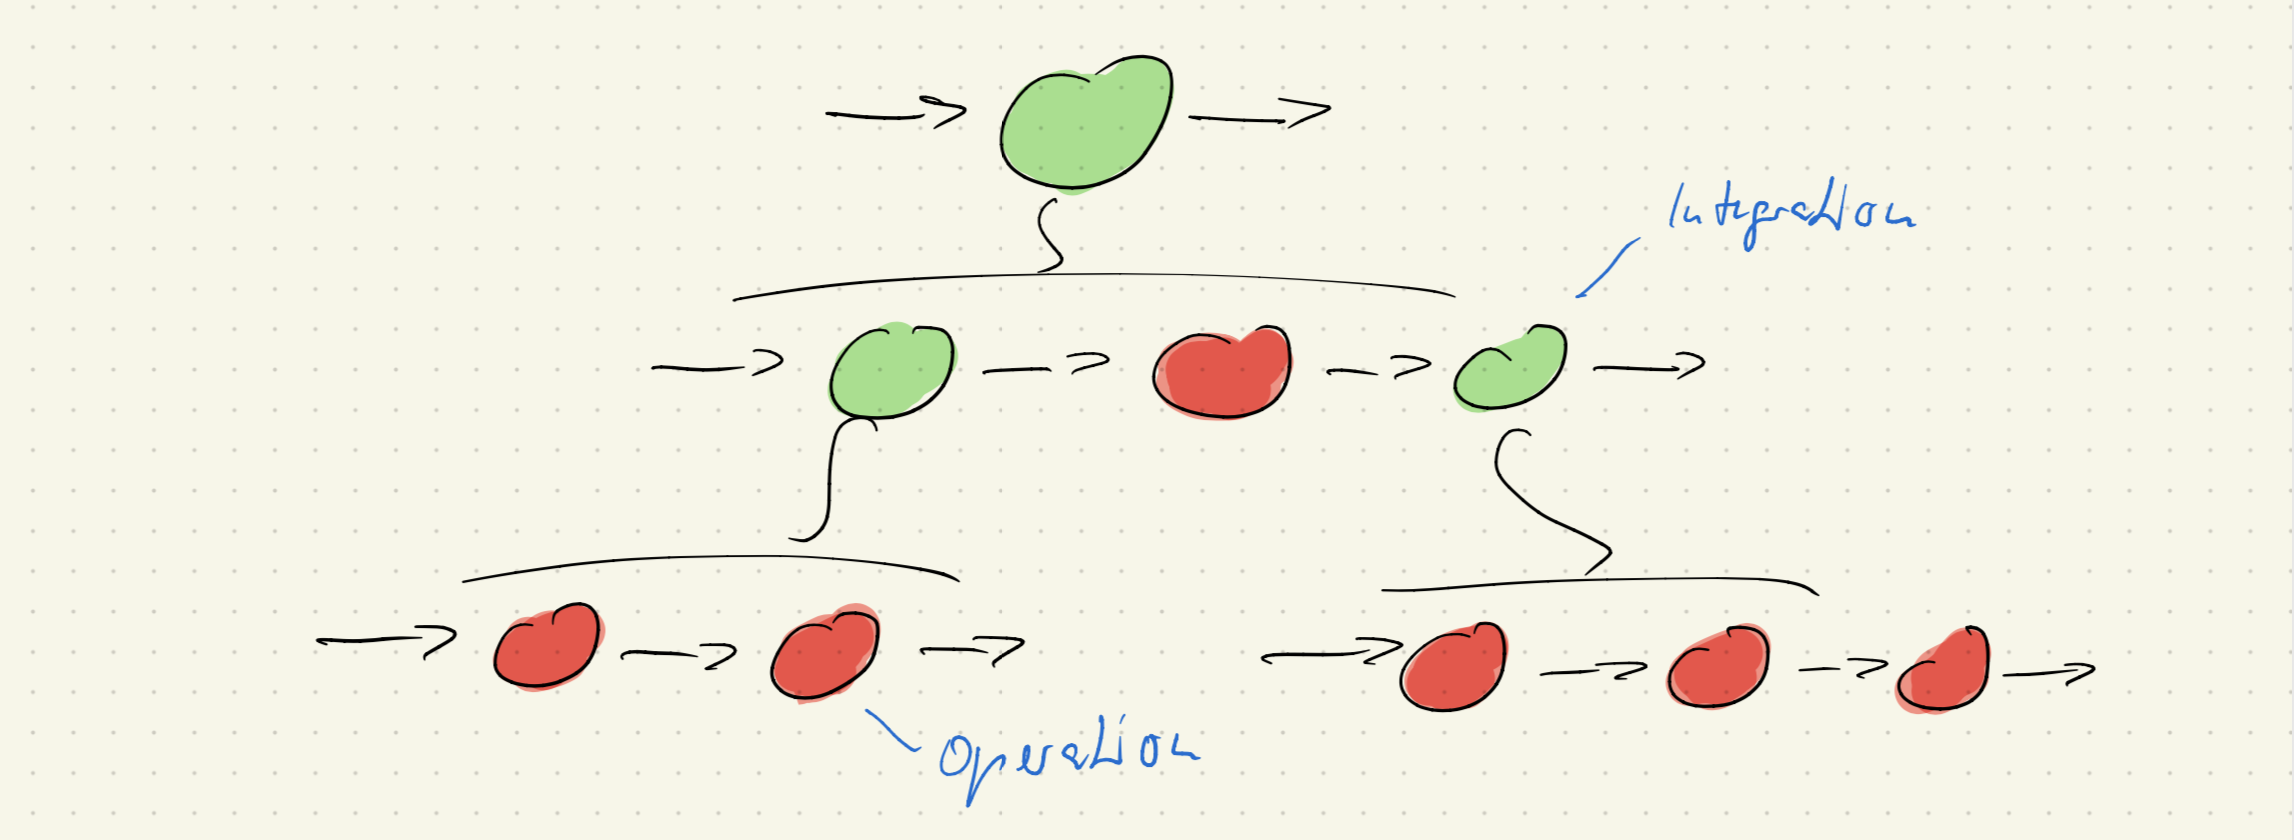 Integration
Operation